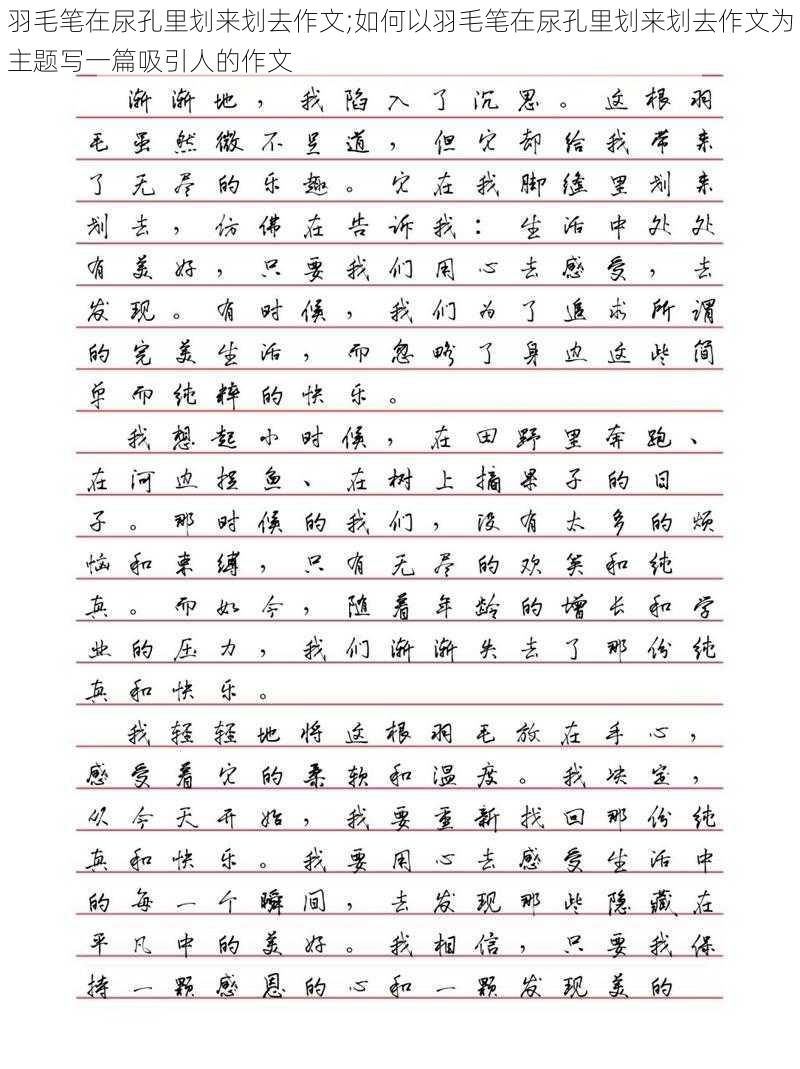 羽毛笔在尿孔里划来划去作文;如何以羽毛笔在尿孔里划来划去作文为
主题写一篇吸引人的作文
渐渐地，我陷入了沉思。这根羽
毛虽然微不足道，但它却给我带来
了无尽的乐趣。它在我脚缝里划来
划去，仿佛在告诉我：生活中处处
有美好，只要我们用心去感受，去
发现。有时候，我们为了追求所谓
的完美生活，而忽略了身边这些简
单而纯粹的快乐。
我想起小时候，在田野里奔跑、
在河边捉鱼、在树上摘果子的日
子。那时候的我们，没有太多的烦
恼和束缚，只有无尽的欢笑和纯
真。而如今，随着年龄的增长和学
业的压力，我们渐渐失去了那份纯
真和快乐。
我轻轻地将这根羽毛放在手心，
感受着它的柔软和温度。我决定，
从今天开始，我要重新找回那份纯
真和快乐。我要用心去感受生活中
的每一个瞬间，去发现那些隐藏在
平凡中的美好。我相信，只要我保
持一颗感恩的心和一颗发现美的